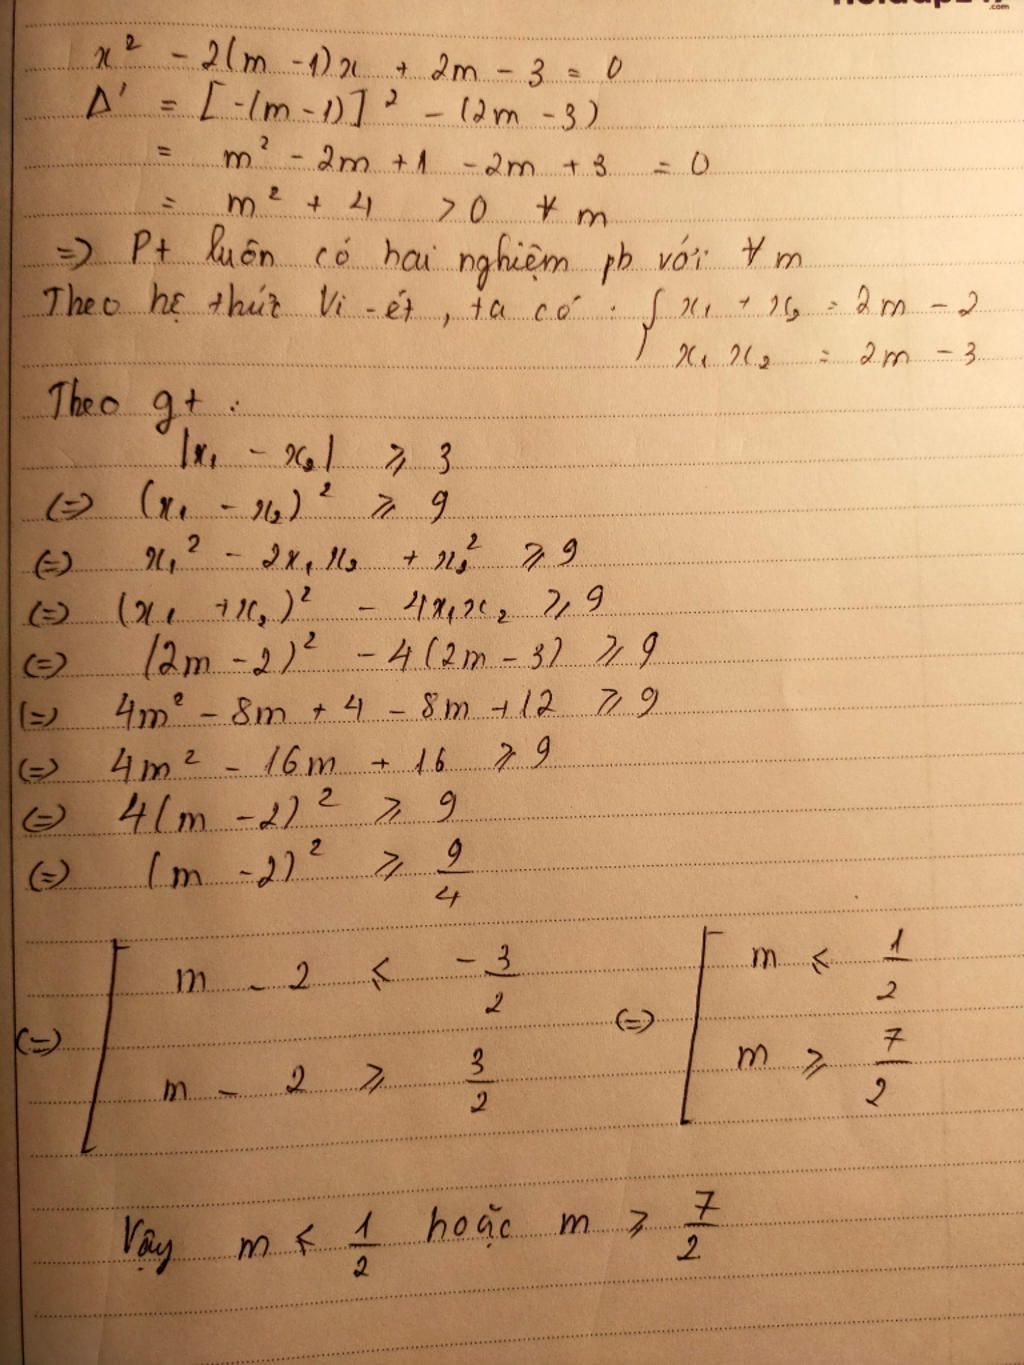 x² - 2(m - 1)x + 2m - 3 = 0
Δ' = [-(m - 1)]² - (2m - 3)
= m² - 2m + 1 - 2m + 3 = 0
= m² + 4 > 0 ∀ m
=> Pt luôn có hai nghiệm pb với ∀ m
Theo hệ thức Vi-ét, ta có : { x₁ + x₂ = 2m - 2
x₁ x₂ = 2m - 3
Theo gt :
|x₁ - x₂| ⩾ 3
(=) (x₁ - x₂)² ⩾ 9
(=) x₁² - 2x₁x₂ + x₂² ⩾ 9
(=) (x₁ + x₂)² - 4x₁x₂ ⩾ 9
(=) (2m - 2)² - 4(2m - 3) ⩾ 9
(=) 4m² - 8m + 4 - 8m + 12 ⩾ 9
(=) 4m² - 16m + 16 ⩾ 9
(=) 4(m - 2)² ⩾ 9
(=) (m - 2)² ⩾ 9/4
(=) [ m - 2 ⩽ -3/2 (=) [ m ⩽ 1/2
m - 2 ⩾ 3/2 m ⩾ 7/2
Vậy m ⩽ 1/2 hoặc m ⩾ 7/2